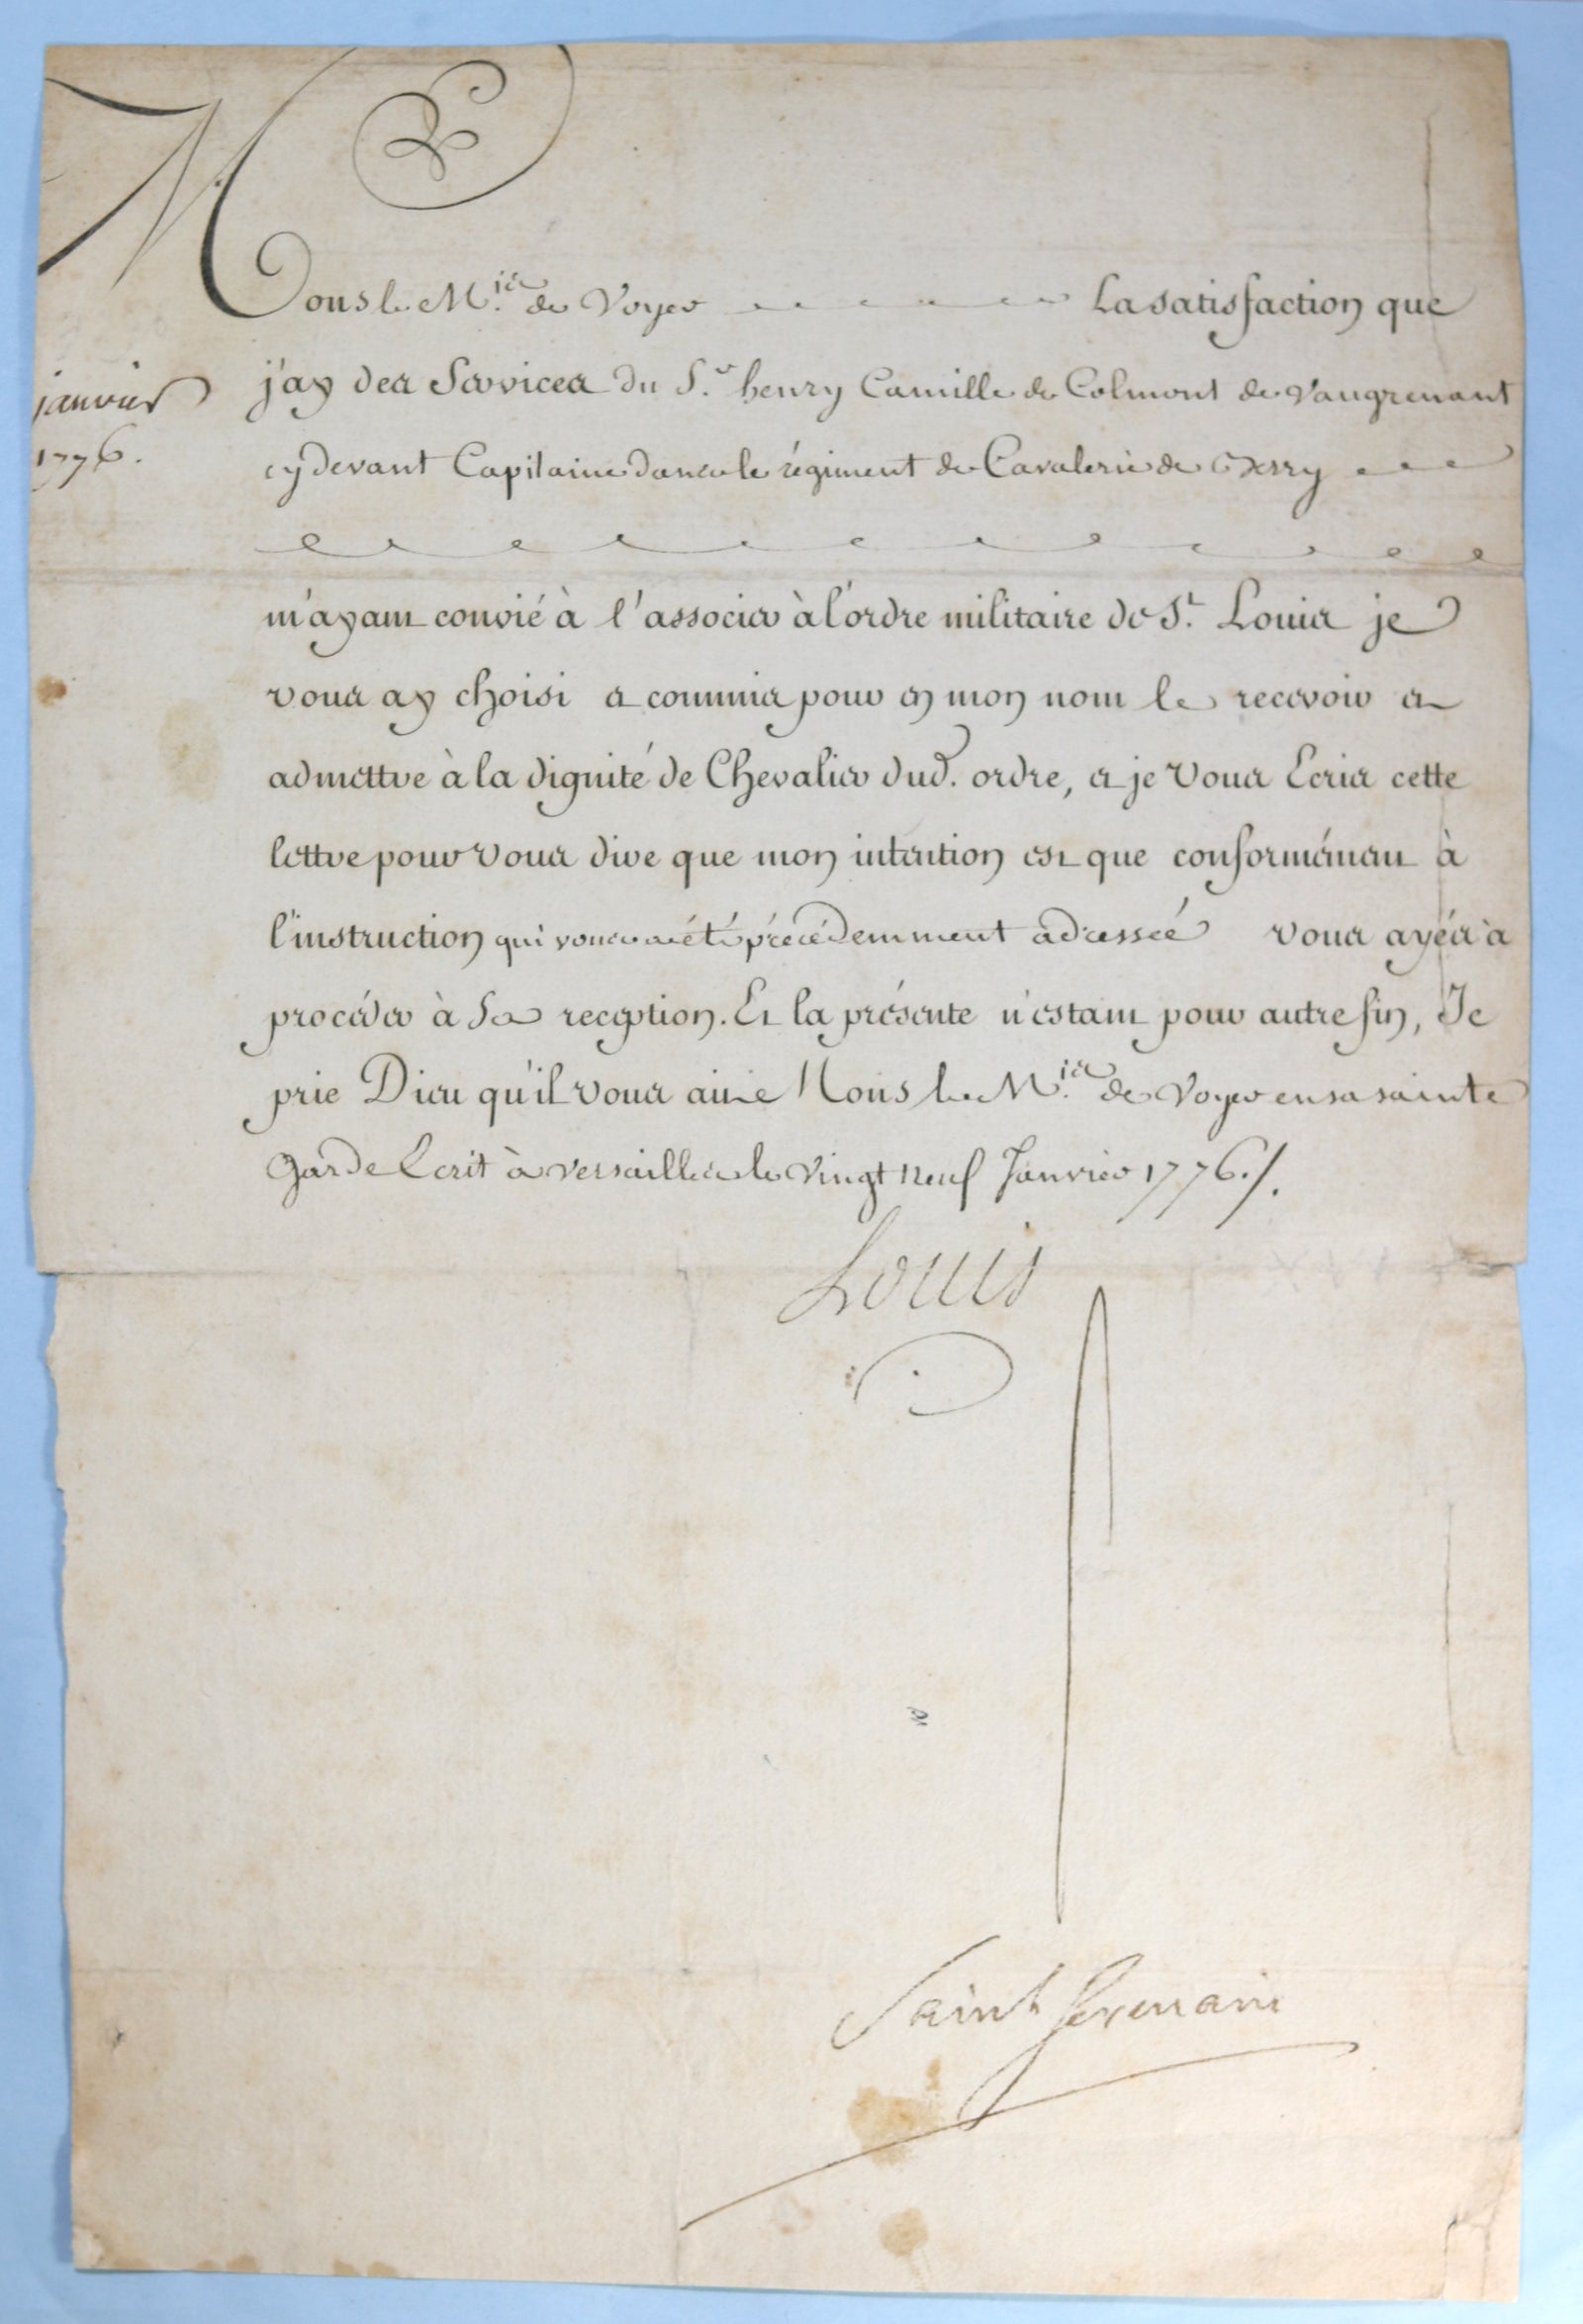 Mons le M.is de Voyer La satisfaction que
janvier
1776.
j'ay des Services du S.r henry Camille de Colmont de Vaugrenant
cydevant Capitaine dans le régiment de Cavalerie de Berry
m'ayant convié à l'associer à l'ordre militaire de St. Louis je
vous ay choisi et commis pour en mon nom le recevoir et
admettre à la dignité de Chevalier dud. ordre, et je Vous Ecris cette
lettre pour Vous dire que mon intention est que conformément à
l'instruction qui vous a été précédemment adressée vous ayéz à
procéder à Sa reception. Et la présente n'estant pour autre fin, Je
prie Dieu qu'il vous ait Mons le M.is de Voyer en sa sainte
garde Ecrit à Versailles le Vingt neuf Janvier 1776./.
Louis
Saint germain